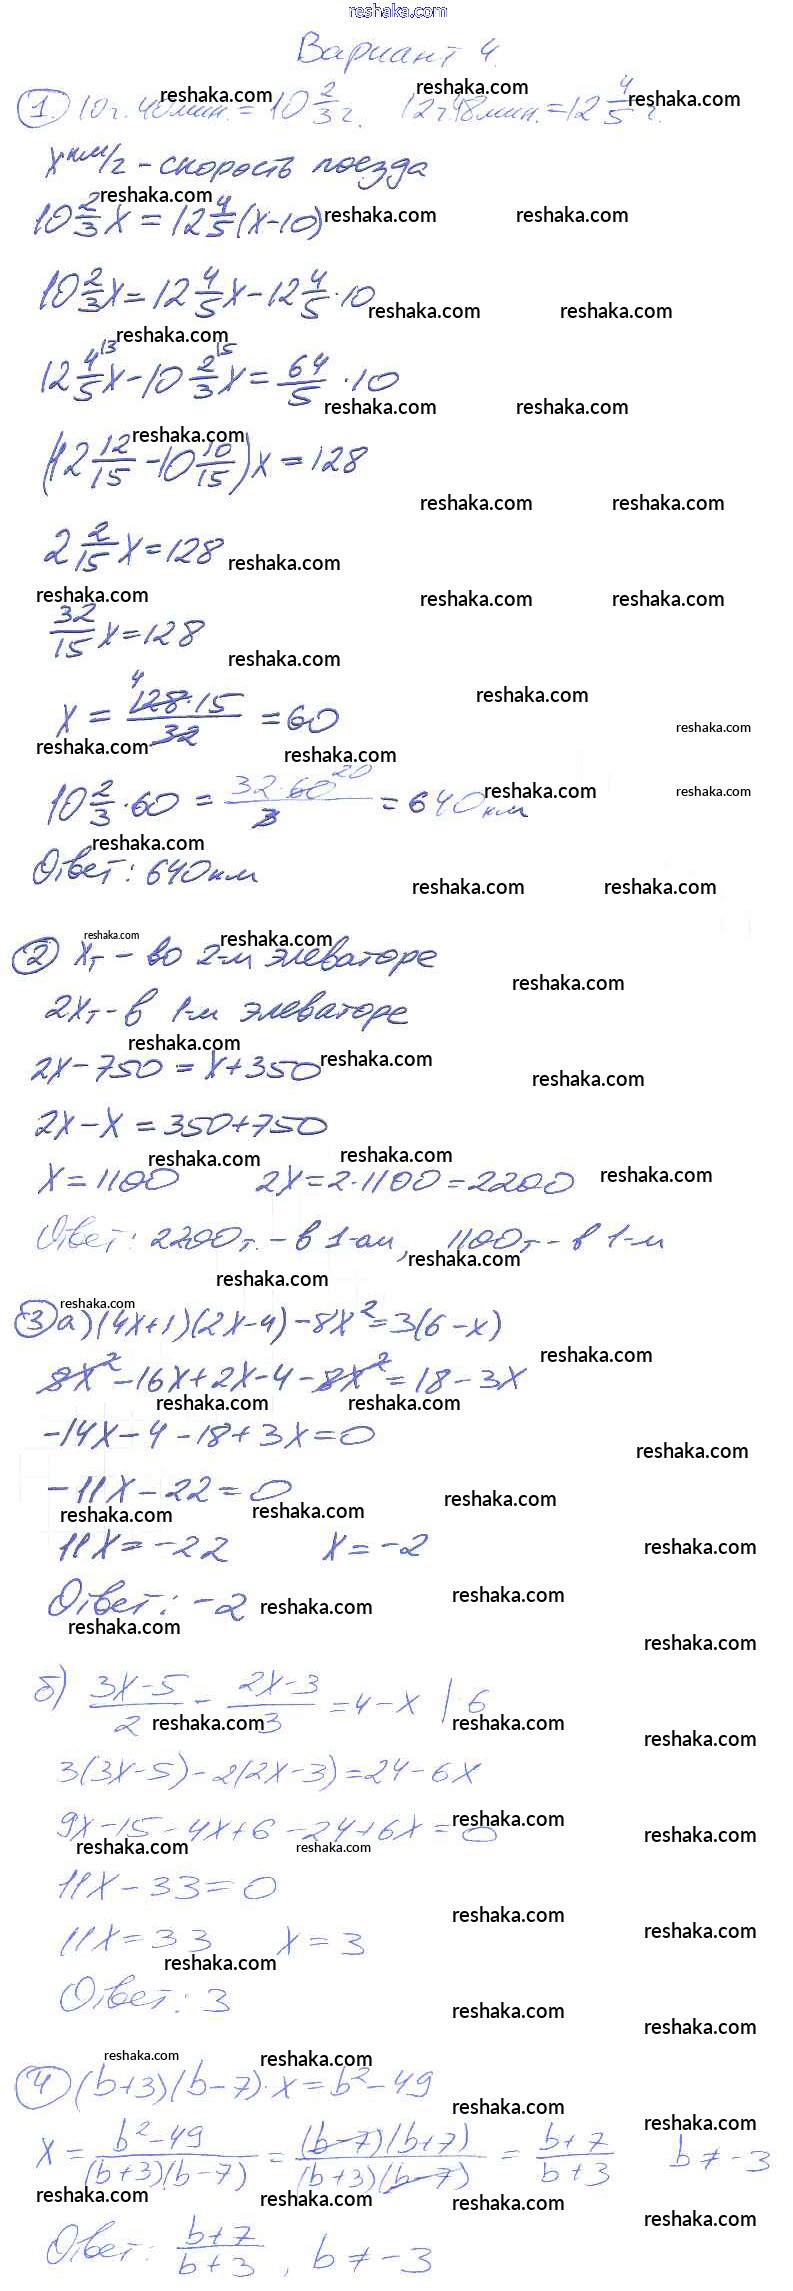 reshaka.com
Вариант 4.
1. 10ч. 40мин. = 10 2/3 ч. 12ч.48мин. = 12 4/5 ч.
x км/ч - скорость поезда
10 2/3 x = 12 4/5 (x-10)
10 2/3 x = 12 4/5 x - 12 4/5 · 10
12 4/5 x - 10 2/3 x = 64/5 · 10
(12 12/15 - 10 10/15) x = 128
2 2/15 x = 128
32/15 x = 128
x = 128·15/32 = 60
10 2/3 · 60 = 32·60/3 = 640 км
Ответ: 640 км
2 xт - во 2-м элеваторе
2xт - в 1-м элеваторе
2x - 750 = x + 350
2x - x = 350 + 750
x = 1100 2x = 2·1100 = 2200
Ответ: 2200т. - в 1-ом, 1100т - в 1-м
3 а) (4x+1)(2x-4) - 8x² = 3(6-x)
8x² - 16x + 2x - 4 - 8x² = 18 - 3x
-14x - 4 - 18 + 3x = 0
-11x - 22 = 0
11x = -22 x = -2
Ответ: -2
б) (3x-5)/2 - (2x-3)/3 = 4 - x |·6
3(3x-5) - 2(2x-3) = 24 - 6x
9x - 15 - 4x + 6 - 24 + 6x = 0
11x - 33 = 0
11x = 33 x = 3
Ответ: 3
4 (b+3)(b-7)·x = b² - 49
x = (b²-49)/((b+3)(b-7)) = ((b-7)(b+7))/((b+3)(b-7)) = (b+7)/(b+3) b ≠ -3
Ответ: (b+7)/(b+3), b ≠ -3